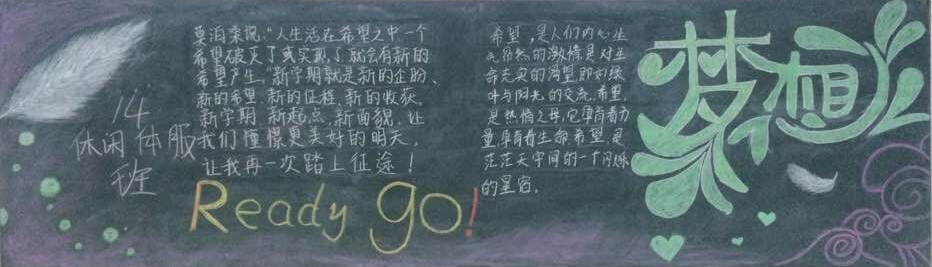 14
休闲体服
班
莫泊桑说:“人生活在希望之中一个
希望破灭了或实现了就会有新的
希望产生.”新学期就是新的企盼、
新的希望.新的征程.新的收获.
新学期.新起点.新面貌.让
我们憧憬更美好的明天,
让我再一次踏上征途!
Ready go!
希望,是人们内心生
气昂然的激情是对生
命充实的渴望即如绿
叶与阳光的交流.希望.
是热情之母,它孕育着力
量孕育着生命.希望.是
茫茫天宇间的一个闪烁
的星宿.
梦想